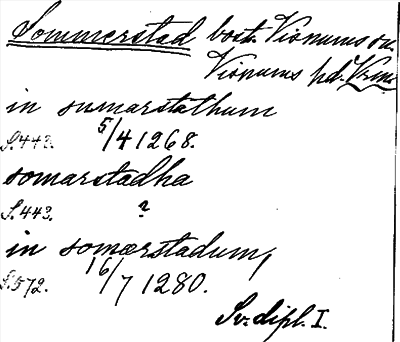 Sommerstad bost. Visnums sn.
Visnums hd. Vrml.
in sumarstathum
S. 443. 5/4 1268.
somarstadha
S. 443. ?
in somærstadum,
S. 572. 16/7 1280.
Sv. dipl. I.